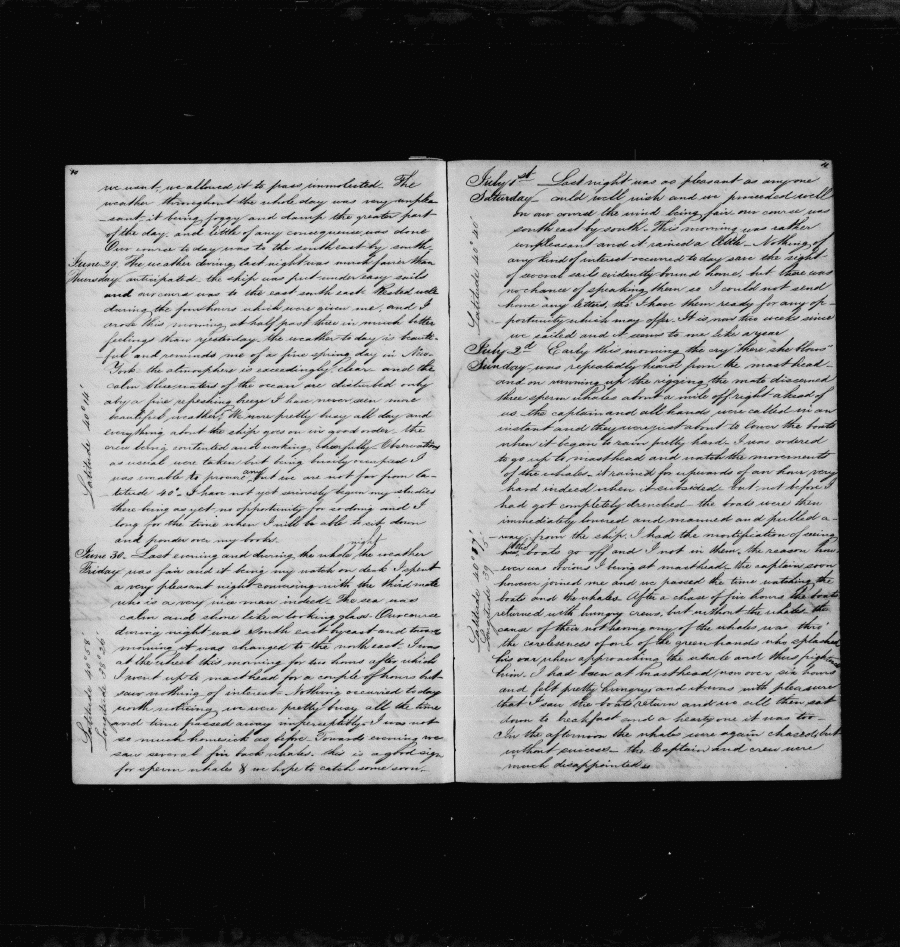 we want, we allowed it to pass unmolested. The
weather throughout the whole day was very unplea-
-sant, it being foggy and damp the greater part
of the day, and little of any consequence was done
Our course to day was to the southeast by south.
June 29. The weather during last night was much fairer than
Thursday anticipated. the ship was put under easy sails
and our course was to the east south east. Rested well
during the four hours which were given me, and I
arose this morning at half past three in much better
feelings than yesterday. the weather to day is beauti-
-ful and reminds me of a fine spring day in New
York the atmosphere is exceedingly clear and the
calm blue waters of the ocean are disturbed only
by a fine refreshing breeze I have never seen more
beautiful weather, We were pretty busy all day and
everything about the ship goes on in good order. the
crew being contented and working cheerfully Observations
as usual were taken but being busily occupied I
was unable to procure any but we are not far from la-
titude 40° I have not yet seriously begun my studies
there being as yet no opportunity for so doing and I
long for the time when I will be able to sit down
and ponder over my books.
Latitude 40° 14'
June 30. Last evening and during the whole night the weather
Friday was fair and it being my watch on deck I spent
a very pleasant night conversing with the third mate
who is a very nice man indeed. The sea was
calm and shone like a looking glass. Our course
during night was South east by east and towards
morning it was changed to the north east. I was
at the wheel this morning for two hours after which
I went up to masthead for a couple of hours but
saw nothing of interest. Nothing occurred to day
worth noticing, we were pretty busy all the time
and time passed away imperceptibly. I was not
so much homesick as before. Towards evening we
saw several fin back whales. this is a good sign
for sperm whales & we hope to catch some soon.
Latitude 40° 58'
Longitude 38° 26'
July 1st Last night was as pleasant as any one
Saturday could well wish and we proceeded well
on our course the wind being fair our course was
south east by south. This morning was rather
unpleasant and it rained a little. Nothing of
any kind of interest occurred to day saw the sight
of several sails evidently bound home, but there was
no chance of speaking them so I could not send
home any letters, tho I have them ready for any op-
portunity which may offer. It is now two weeks since
we sailed and it seems to me like a year
Latitude 40° 40'
July 2d Early this morning the cry "there she blows"
Sunday was repeatedly heard from the mast head
and on running up the rigging the mate discerned
three sperm whales about a mile off, right ahead of
us the captain and all hands were called in an
instant and they were just about to lower the boats
when it began to rain pretty hard. I was ordered
to go up to masthead and watch the movements
of the whales. it rained for upwards of an hour very
hard indeed when it subsided but not before I
had got completely drenched the boats were then
immediately lowered and manned and pulled a-
way from the ship. I had the mortification of seeing
the boats go off and I not in them, the reason how-
ever was obvious I being at masthead the captain soon
however joined me and we passed the time watching the
boats and the whales. After a chase of five hours the boats
returned with hungry crews, but without the whales the
cause of their not having any of the whales was this
the carelessness of one of the green hands who splashed
his oar when approaching the whale and thus frightened
him. I had been at masthead now over six hours
and felt pretty hungry and it was with pleasure
that I saw the boats return and we all then sat
down to breakfast and a hearty one it was too
In the afternoon the whales were again chased, but
without success the Captain and crew were
much disappointed
Latitude 40° 37'
Longitude 39